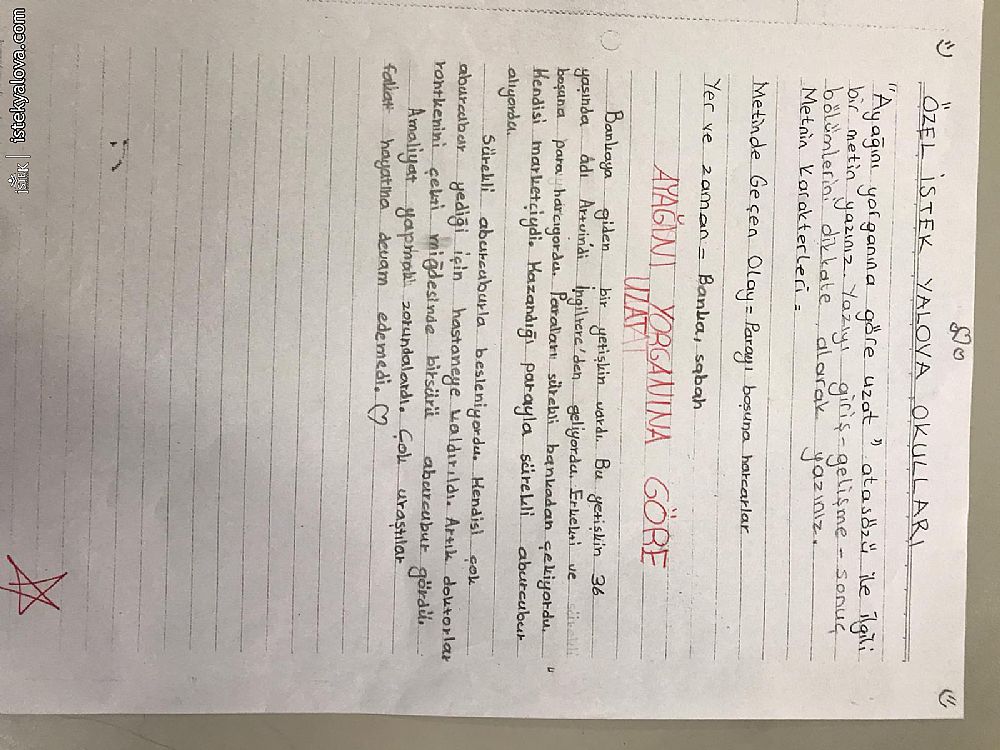 ÖZEL İSTEK YALOVA OKULLARI
"Ayağını yorganına göre uzat" atasözü ile ilgili
bir metin yazınız. Yazıyı giriş-gelişme-sonuç
bölümlerini dikkate alarak yazınız.
Metnin Karakterleri =
Metinde Geçen Olay = Parayı boşuna harcarlar
Yer ve zaman = Banka, sabah
AYAĞINI YORGANINA GÖRE
UZAT
Bankaya giden bir yetişkin vardı. Bu yetişkin 36
yaşında Adı Artvindi İngiltere'den geliyordu. Erkekti ve
boşuna para harcıyordu. Paraları sürekli bankadan çekiyordu.
Kendisi marketçiydi. Kazandığı parayla sürekli aburcubur
alıyordu.
Sürekli aburcuburla besleniyordu. Kendisi çok
aburcubur yediği için hastaneye kaldırıldı. Artık doktorlar
röntkenini çekti miğdesinde birsürü aburcubur gördü.
Amaliyat yapmak zorundalardı. Çok uraştılar
fakat hayatına devam edemedi.
IŞIK | istekyalova.com